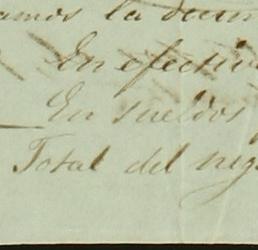 amos la
En efectiv
En sueldos
Total del neg